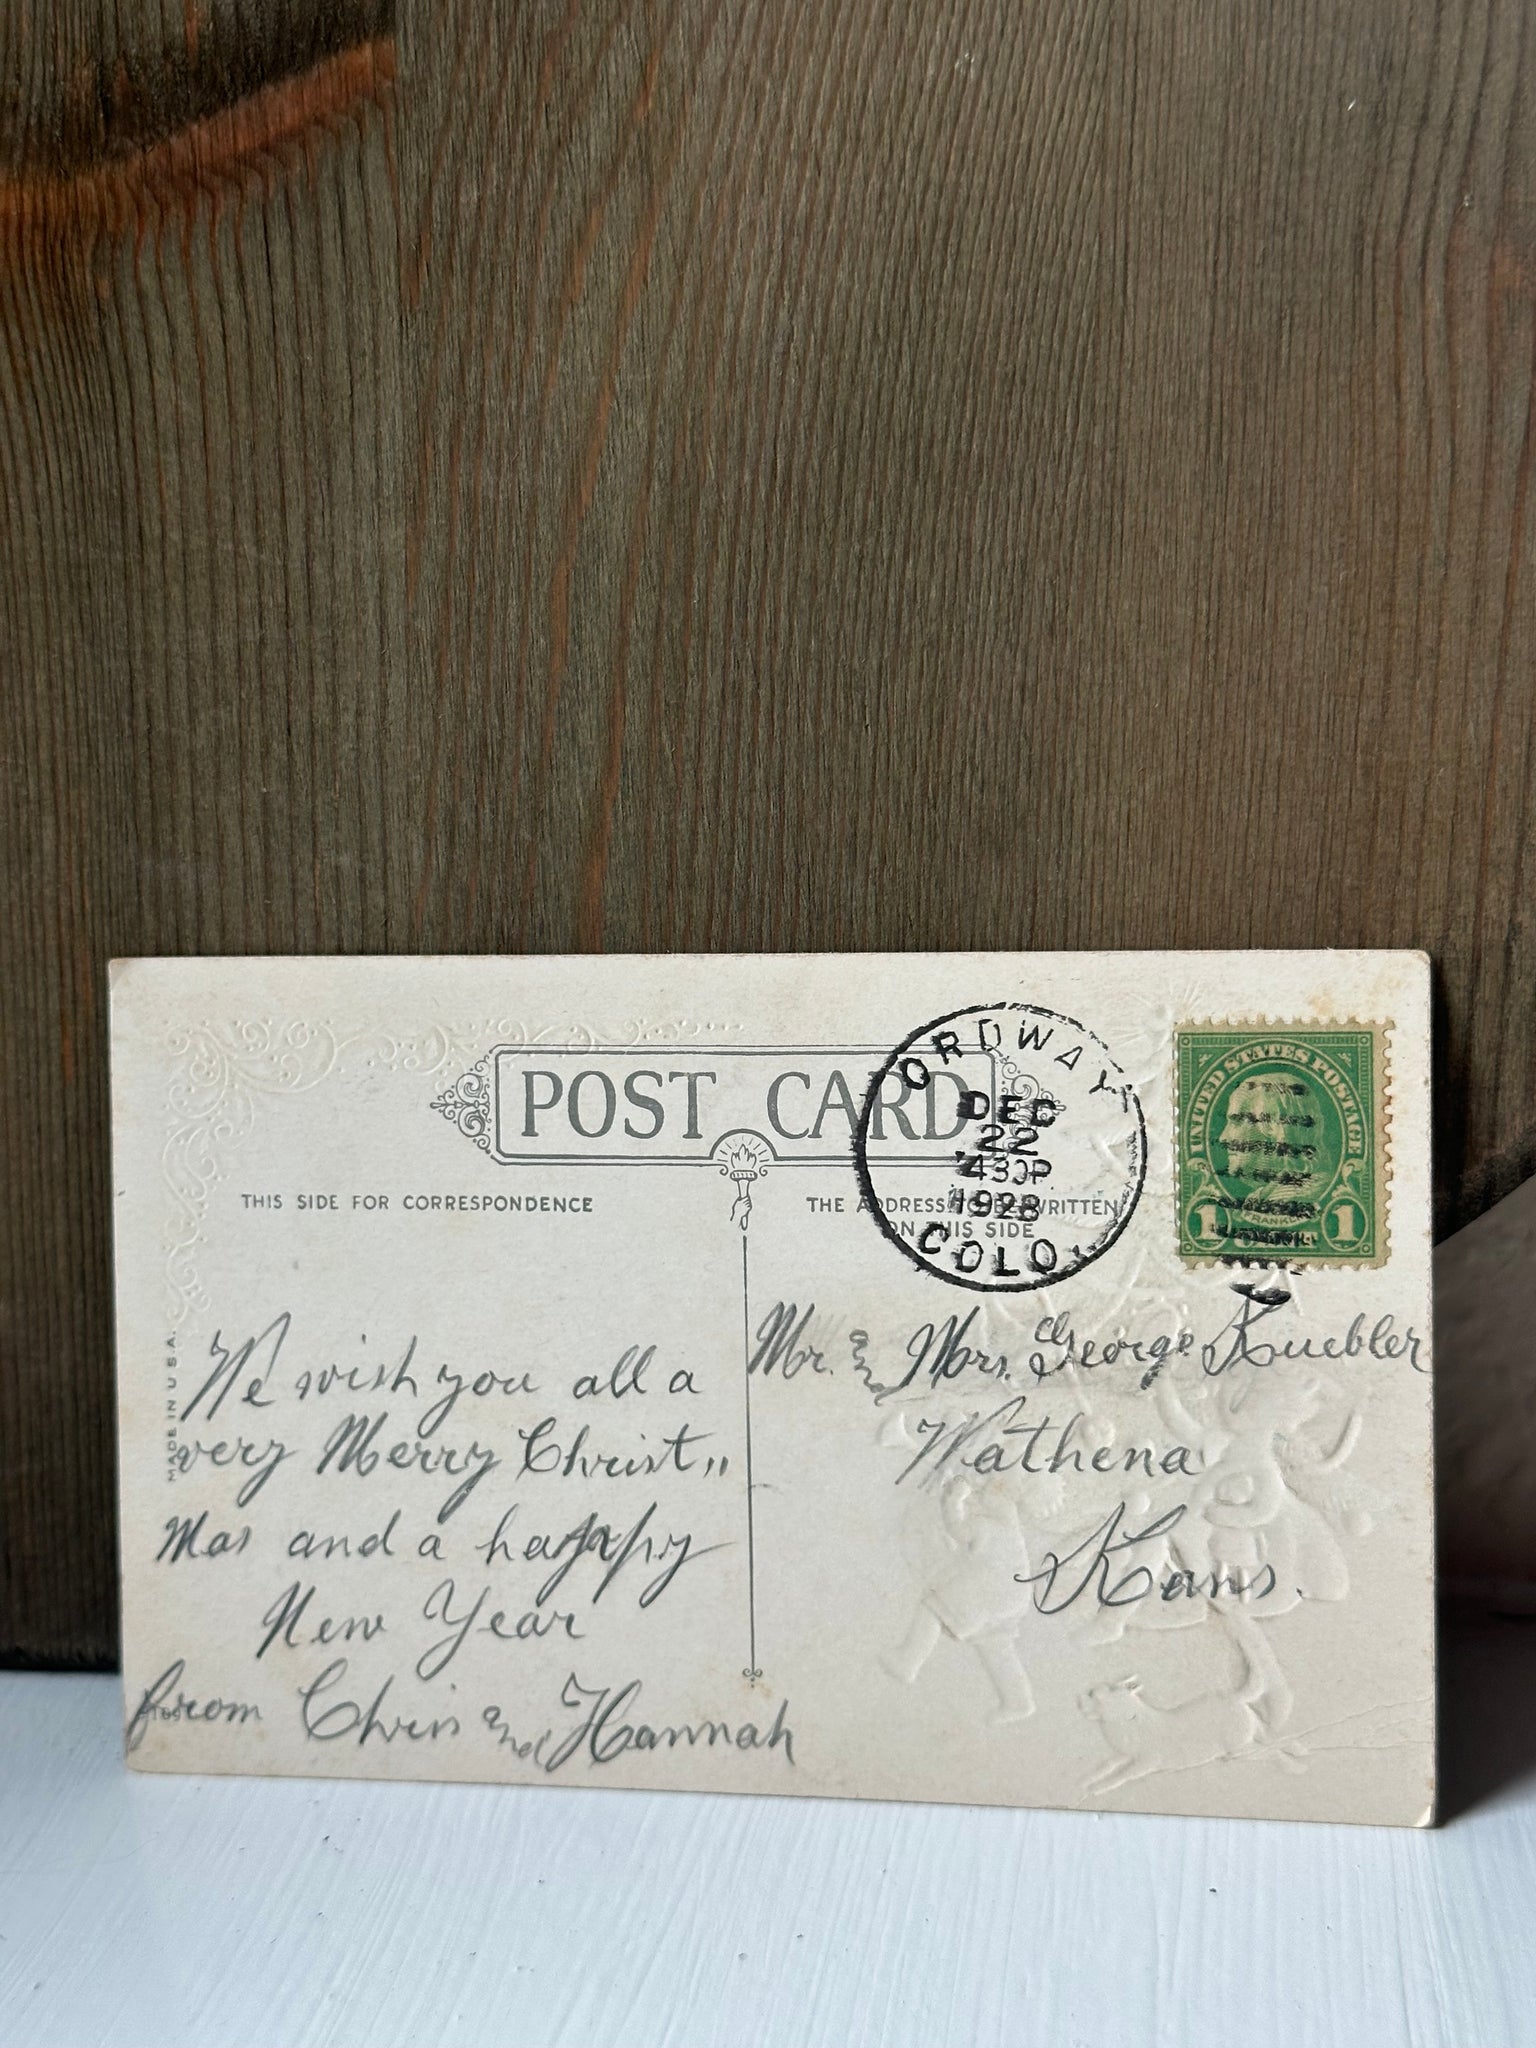 POST CARD
THIS SIDE FOR CORRESPONDENCE
THE ADDRESS TO BE WRITTEN
ON THIS SIDE
ORDWAY
DEC
22
430P
1928
COLO.
UNITED STATES POSTAGE
FRANKLIN
1 1
MADE IN U.S.A.
We wish you all a
very Merry Christ„
Mas and a happy
New Year
from Chris and Hannah
Mr. and Mrs. George Kuebler
Wathena
Kans.